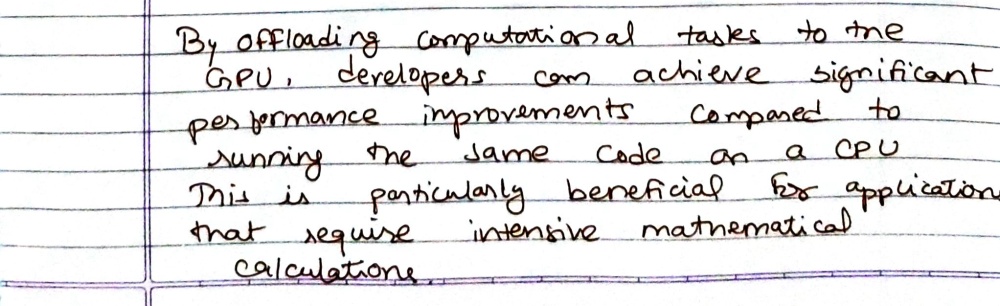 By offloading computational tasks to the
GPU, developers can achieve significant
performance improvements compared to
running the same code on a CPU
This is particularly beneficial for application
that require intensive mathematical
calculations